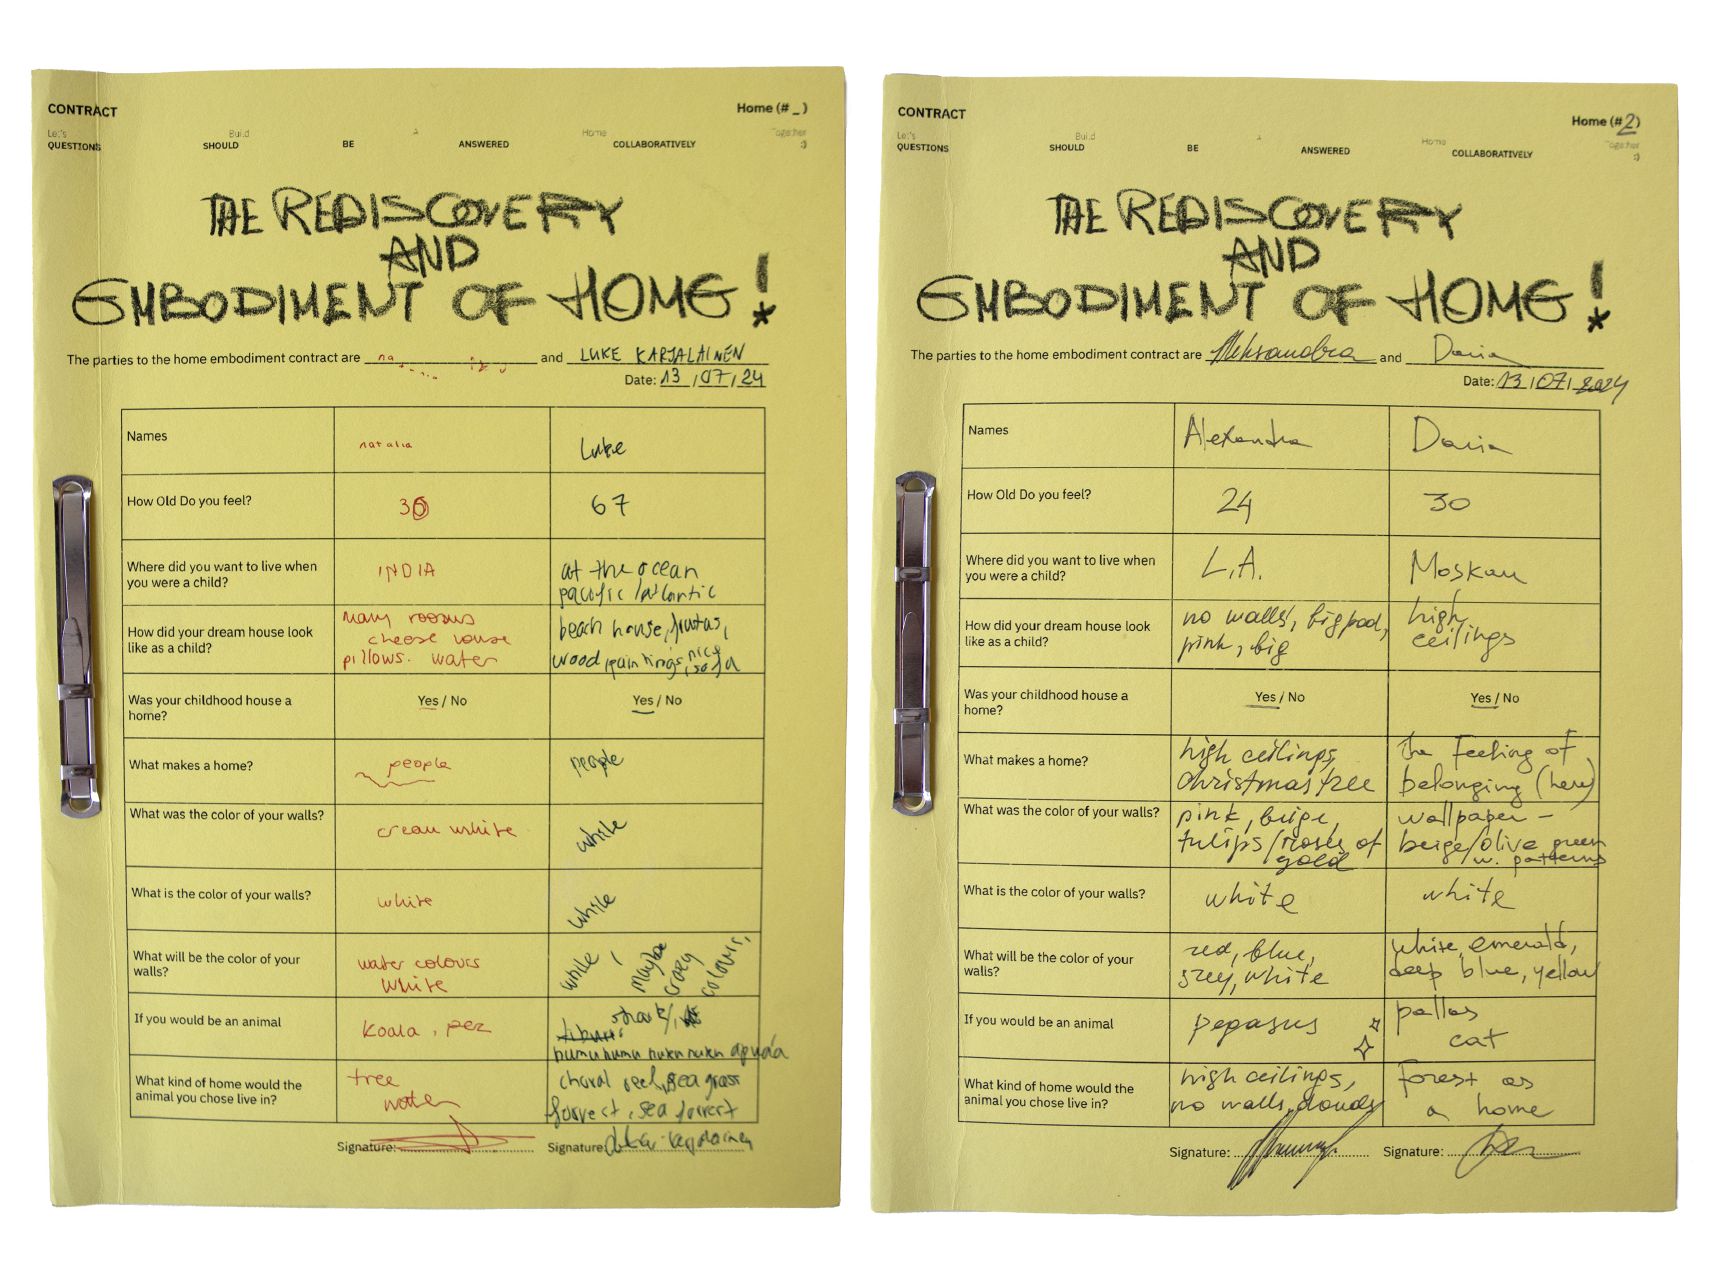 CONTRACT
Home (# _ )
Let's Build a Home Together
QUESTIONS SHOULD BE ANSWERED COLLABORATIVELY :)
THE REDISCOVERY
AND
EMBODIMENT OF HOME!
The parties to the home embodiment contract are and LUKE KARJALAINEN
Date: 13 / 07 / 24
Names natalia Luke
How Old Do you feel? 30 67
Where did you want to live when
you were a child?
INDIA
at the ocean
pacific / atlantic
How did your dream house look
like as a child?
many rooms
cheese house
pillows. water
beach house, frutas,
wood, paintings, nice sofa
Was your childhood house a
home?
Yes / No
Yes / No
What makes a home? people people
What was the color of your walls? cream white white
What is the color of your walls? white white
What will be the color of your
walls?
water colours
white
white,
maybe
crazy
colours,
If you would be an animal
koala, pez
shark,
humu humu nuku nuku apuaa
What kind of home would the
animal you chose live in?
tree
water
choral reef, sea grass
forrest, sea forrest
Signature: Signature:
CONTRACT
Home (#2)
Let's Build a Home Together
QUESTIONS SHOULD BE ANSWERED COLLABORATIVELY :)
THE REDISCOVERY
AND
EMBODIMENT OF HOME!
The parties to the home embodiment contract are Aleksandra and Daria
Date: 13 / 07 / 2024
Names Alexandra Daria
How Old Do you feel? 24 30
Where did you want to live when
you were a child?
L.A.
Moskau
How did your dream house look
like as a child?
no walls, big pool,
pink, big
high
ceilings
Was your childhood house a
home?
Yes / No
Yes / No
What makes a home?
high ceilings,
christmas tree
the feeling of
belonging (here)
What was the color of your walls?
pink, beige,
tulips / of
gold
wallpaper –
beige/olive green
w. patterns
What is the color of your walls? white white
What will be the color of your
walls?
red, blue,
grey, white
white, emerald,
deep blue, yellow
If you would be an animal
pegasus
pallas
cat
What kind of home would the
animal you chose live in?
high ceilings,
no walls, clouds
forest as
a home
Signature: Signature: